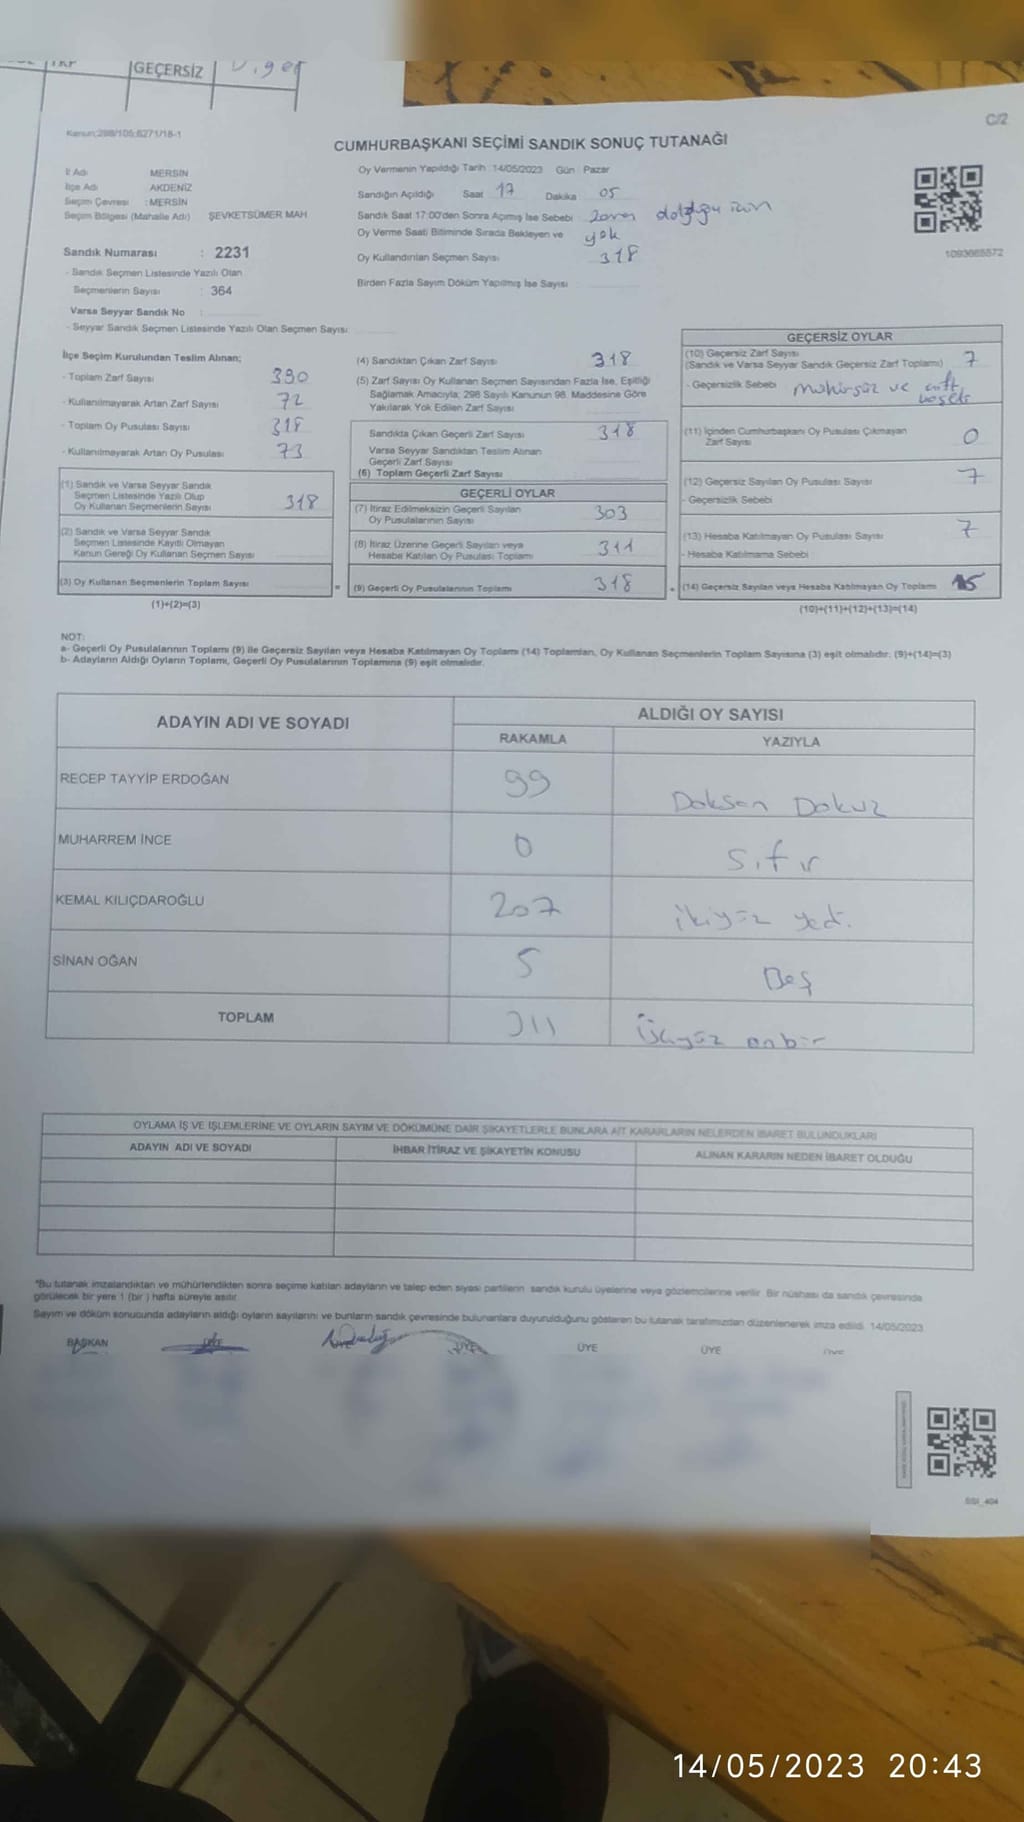 GEÇERSİZ
Diger
Kanun:298/105;6271/18-1
C/2
CUMHURBAŞKANI SEÇİMİ SANDIK SONUÇ TUTANAĞI
İl Adı MERSIN
İlçe Adı AKDENİZ
Seçim Çevresi : MERSİN
Seçim Bölgesi (Mahalle Adı) ŞEVKETSÜMER MAH
Sandık Numarası : 2231
- Sandık Seçmen Listesinde Yazılı Olan
Seçmenlerin Sayısı : 364
Varsa Seyyar Sandık No :
- Seyyar Sandık Seçmen Listesinde Yazılı Olan Seçmen Sayısı:
Oy Vermenin Yapıldığı Tarih : 14/05/2023 Gün : Pazar
Sandığın Açıldığı Saat 17 Dakika 05
Sandık Saat 17:00'den Sonra Açılmış İse Sebebi : zaman dolduğu için
Oy Verme Saati Bitiminde Sırada Bekleyen ve yok
Oy Kullandırılan Seçmen Sayısı 318
Birden Fazla Sayım Döküm Yapılmış İse Sayısı
1093665572
İlçe Seçim Kurulundan Teslim Alınan;
- Toplam Zarf Sayısı 390
- Kullanılmayarak Artan Zarf Sayısı 72
- Toplam Oy Pusulası Sayısı 318
- Kullanılmayarak Artan Oy Pusulası 73
(1) Sandık ve Varsa Seyyar Sandık
Seçmen Listesinde Yazılı Olup
Oy Kullanan Seçmenlerin Sayısı 318
(2) Sandık ve Varsa Seyyar Sandık
Seçmen Listesinde Kayıtlı Olmayan
Kanun Gereği Oy Kullanan Seçmen Sayısı
(3) Oy Kullanan Seçmenlerin Toplam Sayısı =
(1)+(2)=(3)
(4) Sandıktan Çıkan Zarf Sayısı 318
(5) Zarf Sayısı Oy Kullanan Seçmen Sayısından Fazla İse, Eşitliği
Sağlamak Amacıyla; 298 Sayılı Kanunun 98. Maddesine Göre
Yakılarak Yok Edilen Zarf Sayısı
Sandıkta Çıkan Geçerli Zarf Sayısı 318
Varsa Seyyar Sandıktan Teslim Alınan
Geçerli Zarf Sayısı
(6) Toplam Geçerli Zarf Sayısı
GEÇERLİ OYLAR
(7) İtiraz Edilmeksizin Geçerli Sayılan
Oy Pusulalarının Sayısı 303
(8) İtiraz Üzerine Geçerli Sayılan veya
Hesaba Katılan Oy Pusulası Toplamı 311
(9) Geçerli Oy Pusulalarının Toplamı 318 +
GEÇERSİZ OYLAR
(10) Geçersiz Zarf Sayısı
(Sandık ve Varsa Seyyar Sandık Geçersiz Zarf Toplamı) 7
- Geçersizlik Sebebi mühürsüz ve çift
(11) İçinden Cumhurbaşkanı Oy Pusulası Çıkmayan
Zarf Sayısı 0
(12) Geçersiz Sayılan Oy Pusulası Sayısı 7
- Geçersizlik Sebebi
(13) Hesaba Katılmayan Oy Pusulası Sayısı 7
- Hesaba Katılmama Sebebi
(14) Geçersiz Sayılan veya Hesaba Katılmayan Oy Toplamı
(10)+(11)+(12)+(13)=(14)
NOT:
a- Geçerli Oy Pusulalarının Toplamı (9) ile Geçersiz Sayılan veya Hesaba Katılmayan Oy Toplamı (14) Toplamları, Oy Kullanan Seçmenlerin Toplam Sayısına (3) eşit olmalıdır. (9)+(14)=(3)
b- Adayların Aldığı Oyların Toplamı, Geçerli Oy Pusulalarının Toplamına (9) eşit olmalıdır.
ADAYIN ADI VE SOYADI ALDIĞI OY SAYISI
RAKAMLA YAZIYLA
RECEP TAYYİP ERDOĞAN 99 Doksan Dokuz
MUHARREM İNCE 0 Sıfır
KEMAL KILIÇDAROĞLU 207 ikiyüz yedi.
SİNAN OĞAN 5 Beş
TOPLAM 311 Üçyüz onbir
OYLAMA İŞ VE İŞLEMLERİNE VE OYLARIN SAYIM VE DÖKÜMÜNE DAİR ŞİKAYETLERLE BUNLARA AİT KARARLARIN NELERDEN İBARET BULUNDUKLARI
ADAYIN ADI VE SOYADI İHBAR İTİRAZ VE ŞİKAYETİN KONUSU ALINAN KARARIN NEDEN İBARET OLDUĞU
*Bu tutanak imzalandıktan ve mühürlendikten sonra seçime katılan adayların ve talep eden siyasi partilerin sandık kurulu üyelerine veya gözlemcilerine verilir. Bir nüshası da sandık çevresinde
görülecek bir yere 1 (bir) hafta süreyle asılır.
Sayım ve döküm sonucunda adayların aldığı oyların sayılarını ve bunların sandık çevresinde bulunanlara duyurulduğunu gösteren bu tutanak tarafımızdan düzenlenerek imza edildi. 14/05/2023
BAŞKAN ÜYE ÜYE ÜYE ÜYE ÜYE
SSI_404
14/05/2023 20:43